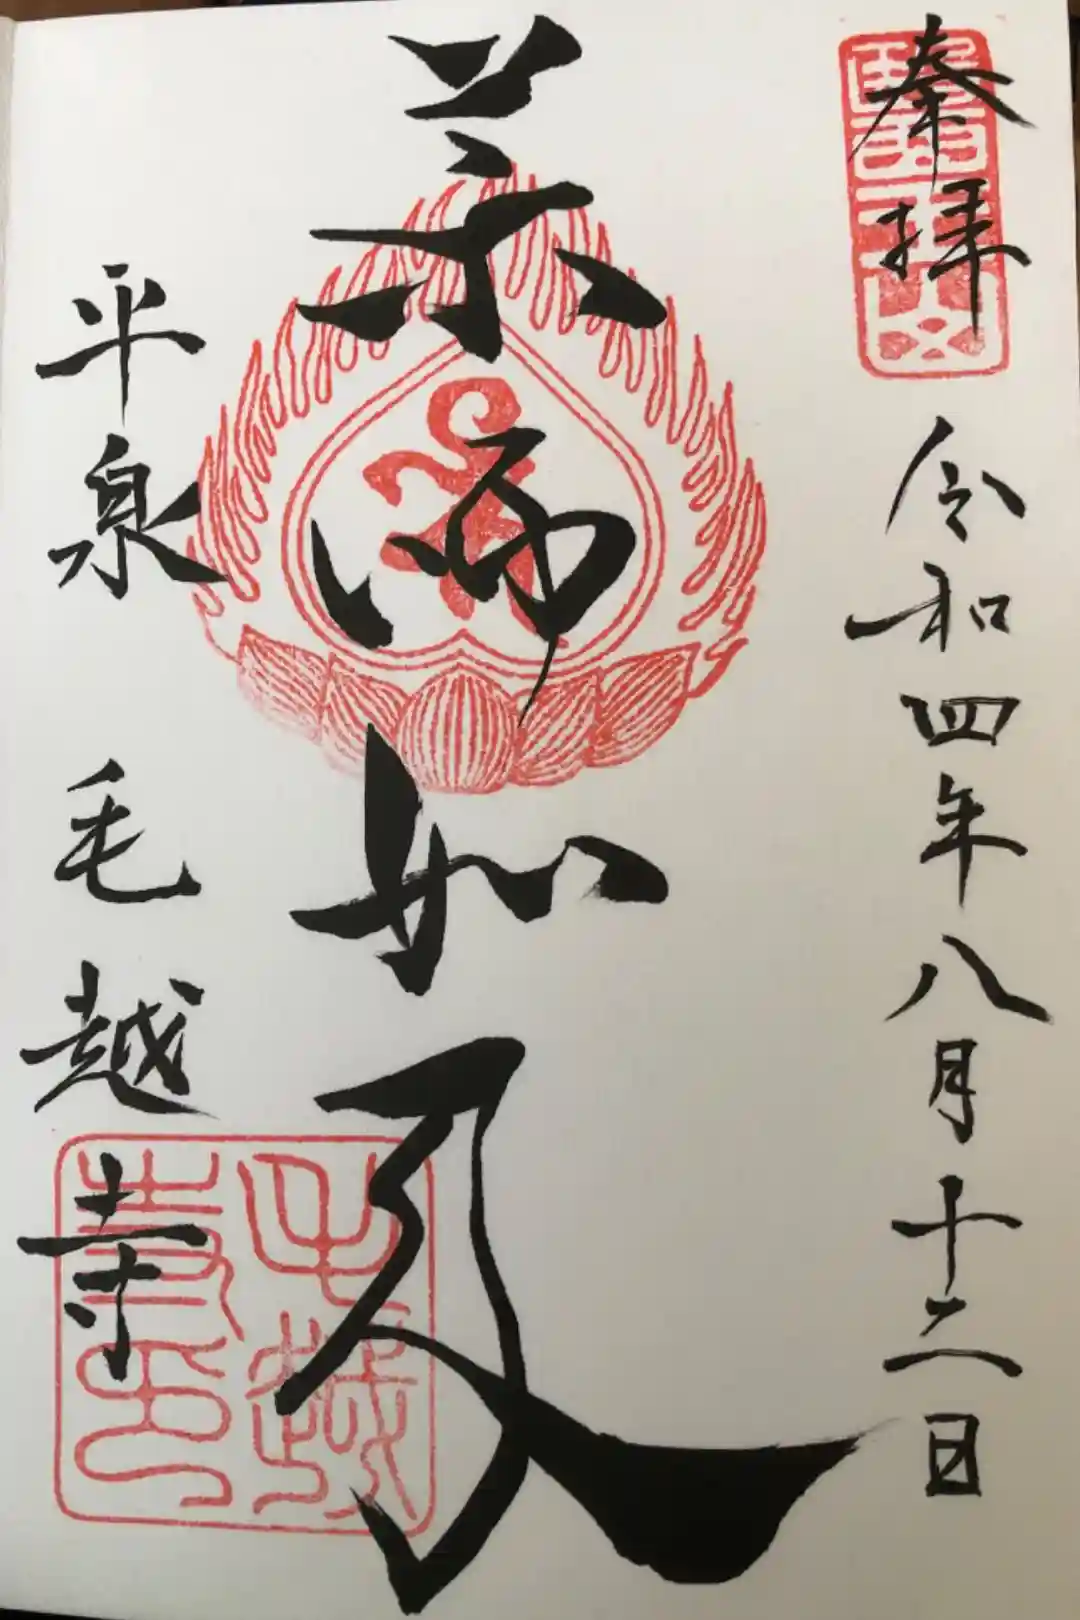 奉拝
令和四年八月十二日
薬師如来
平泉 毛越寺
毛越寺印